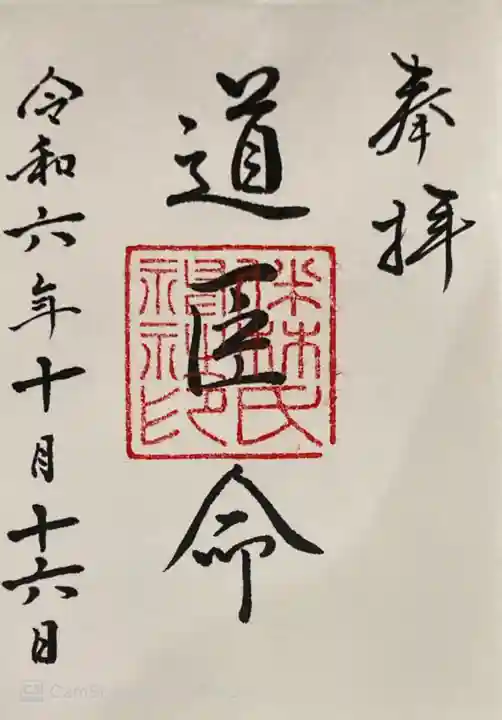 奉拝
道臣命
令和六年十月十六日
CamS